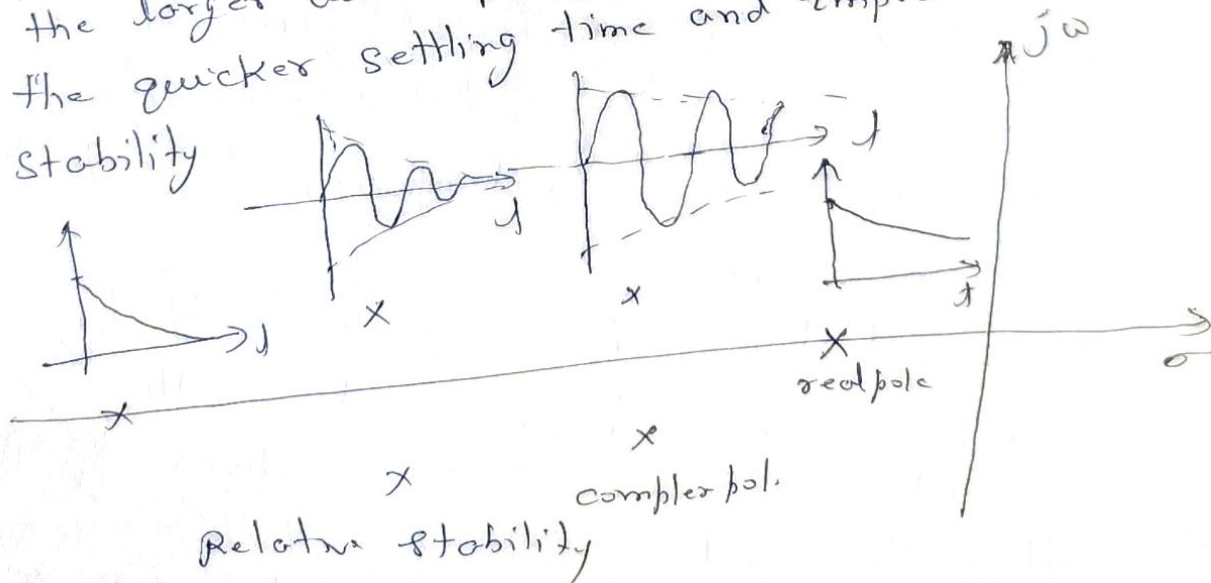 the larger
the quicker settling time and
stability
jω
t
t
t
t
real pole
σ
complex pol.
Relative stability